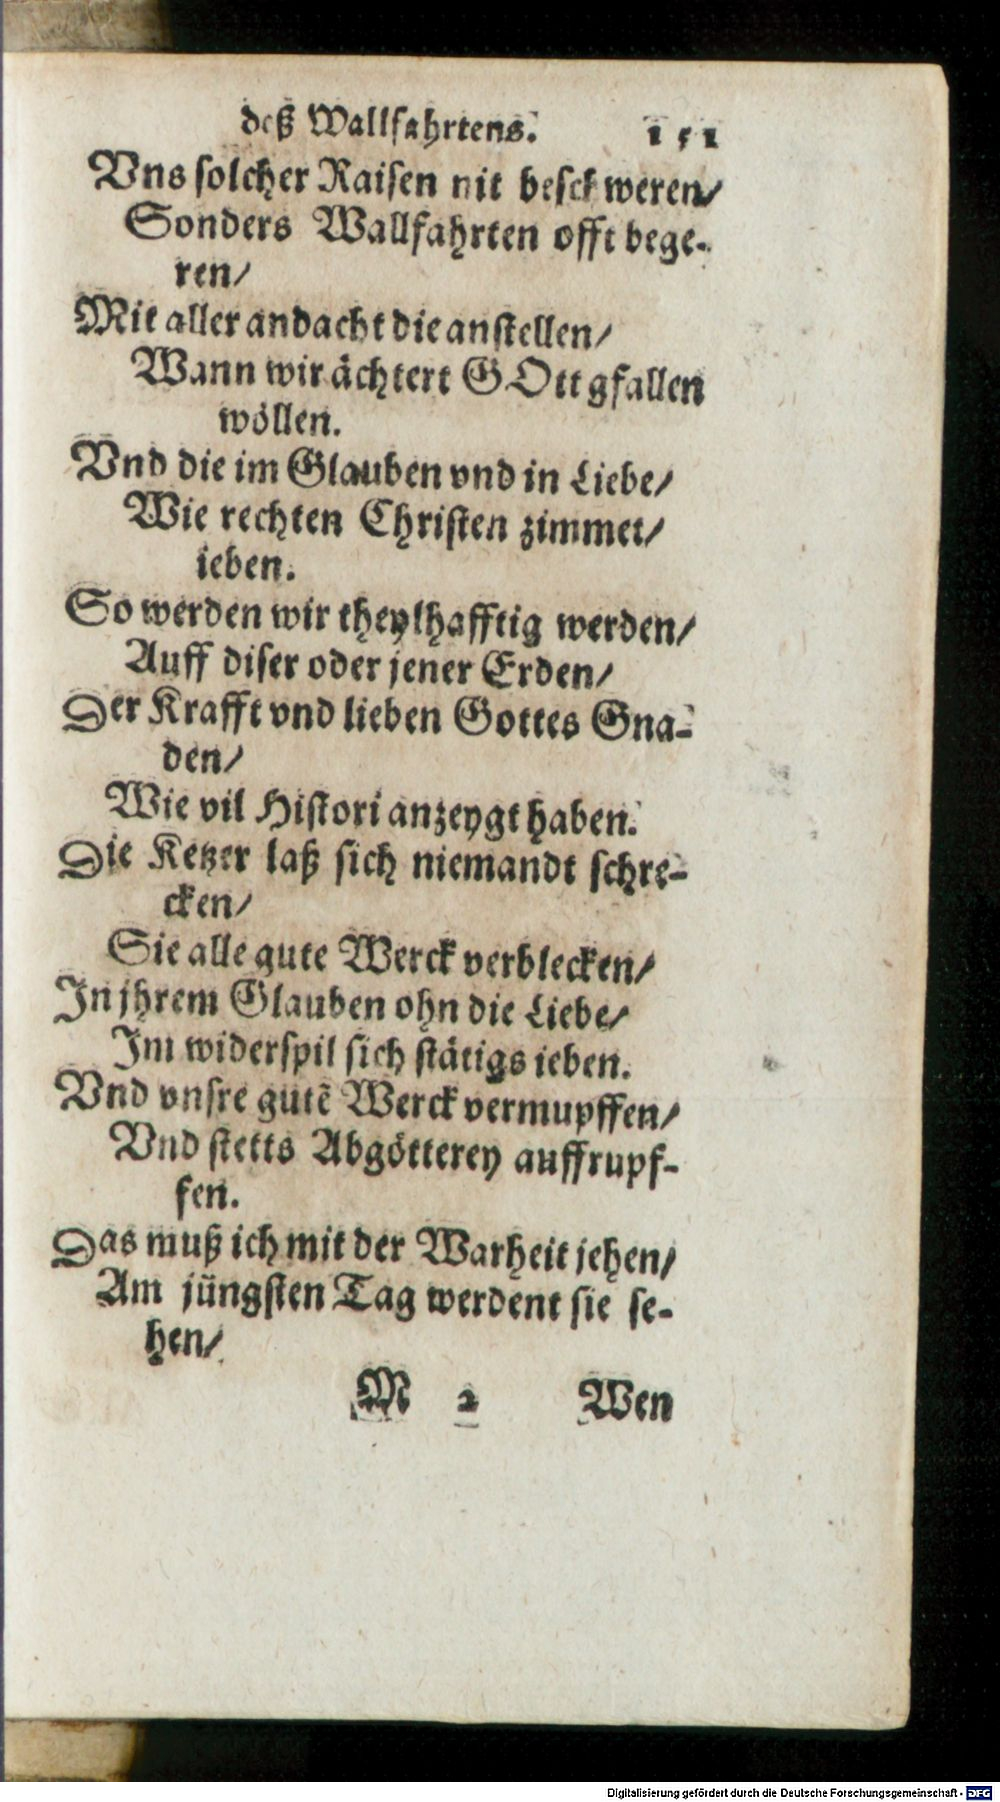 deß Wallfahrtens. 151
Vns solcher Raisen nit beschweren/
Sonders Wallfahrten offt bege-
ren/
Mit aller andacht die anstellen/
Wann wir ächtert GOtt gfallen
wöllen.
Vnd die im Glauben vnd in Liebe/
Wie rechten Christen zimmet/
ieben.
So werden wir theylhafftig werden/
Auff diser oder jener Erden/
Der Krafft vnd lieben Gottes Gna-
den/
Wie vil Histori anzeygt haben.
Die Ketzer laß sich niemandt schre-
cken/
Sie alle gute Werck verblecken/
In jhrem Glauben ohn die Liebe/
Im widerspil sich stätigs ieben.
Vnd vnsre gutē Werck vermupffen/
Vnd stetts Abgötterey auffrupf-
fen.
Das muß ich mit der Warheit jehen/
Am jüngsten Tag werdent sie se-
hen/
M 2 Wen
Digitalisierung gefördert durch die Deutsche Forschungsgemeinschaft - DFG